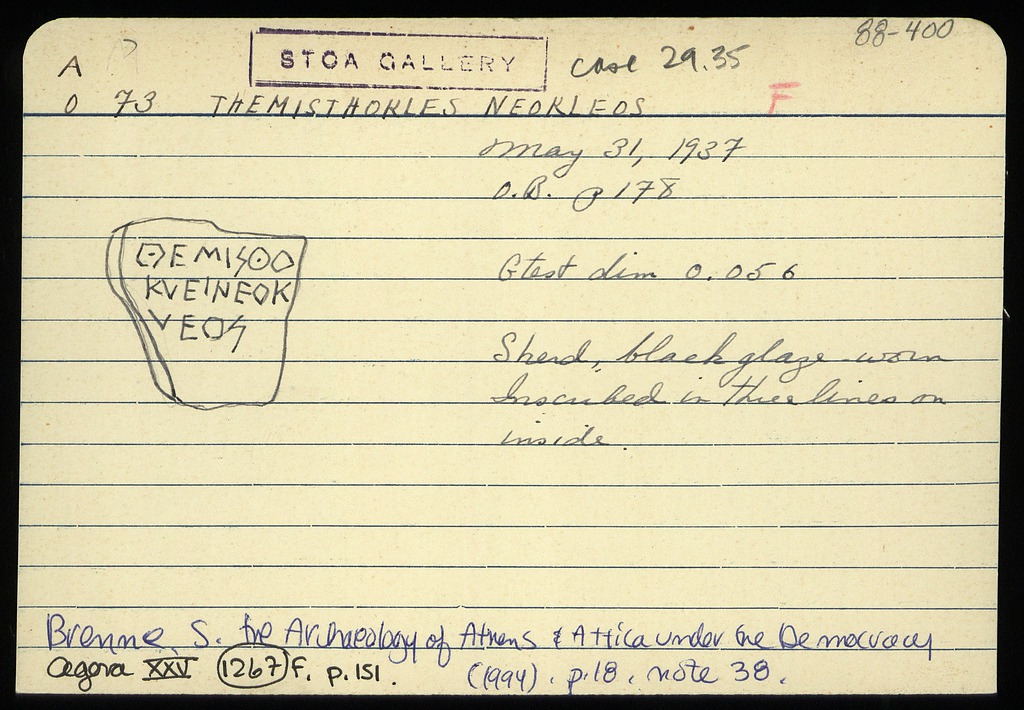 88-400
A STOA GALLERY case 29.35
O 73 THEMISTHOKLES NEOKLEOS F
May 31, 1937
O.B. p 178
ΘEMISOO
KVEINEOK
VEOS
Gtest dim 0.056
Sherd, black glaze worn
Inscribed in three lines on
inside.
Brenne, S. the Archaeology of Athens & Attica under the Democracy
(1994). p.18, note 38.
Agora XXV 1267 F. p.151.